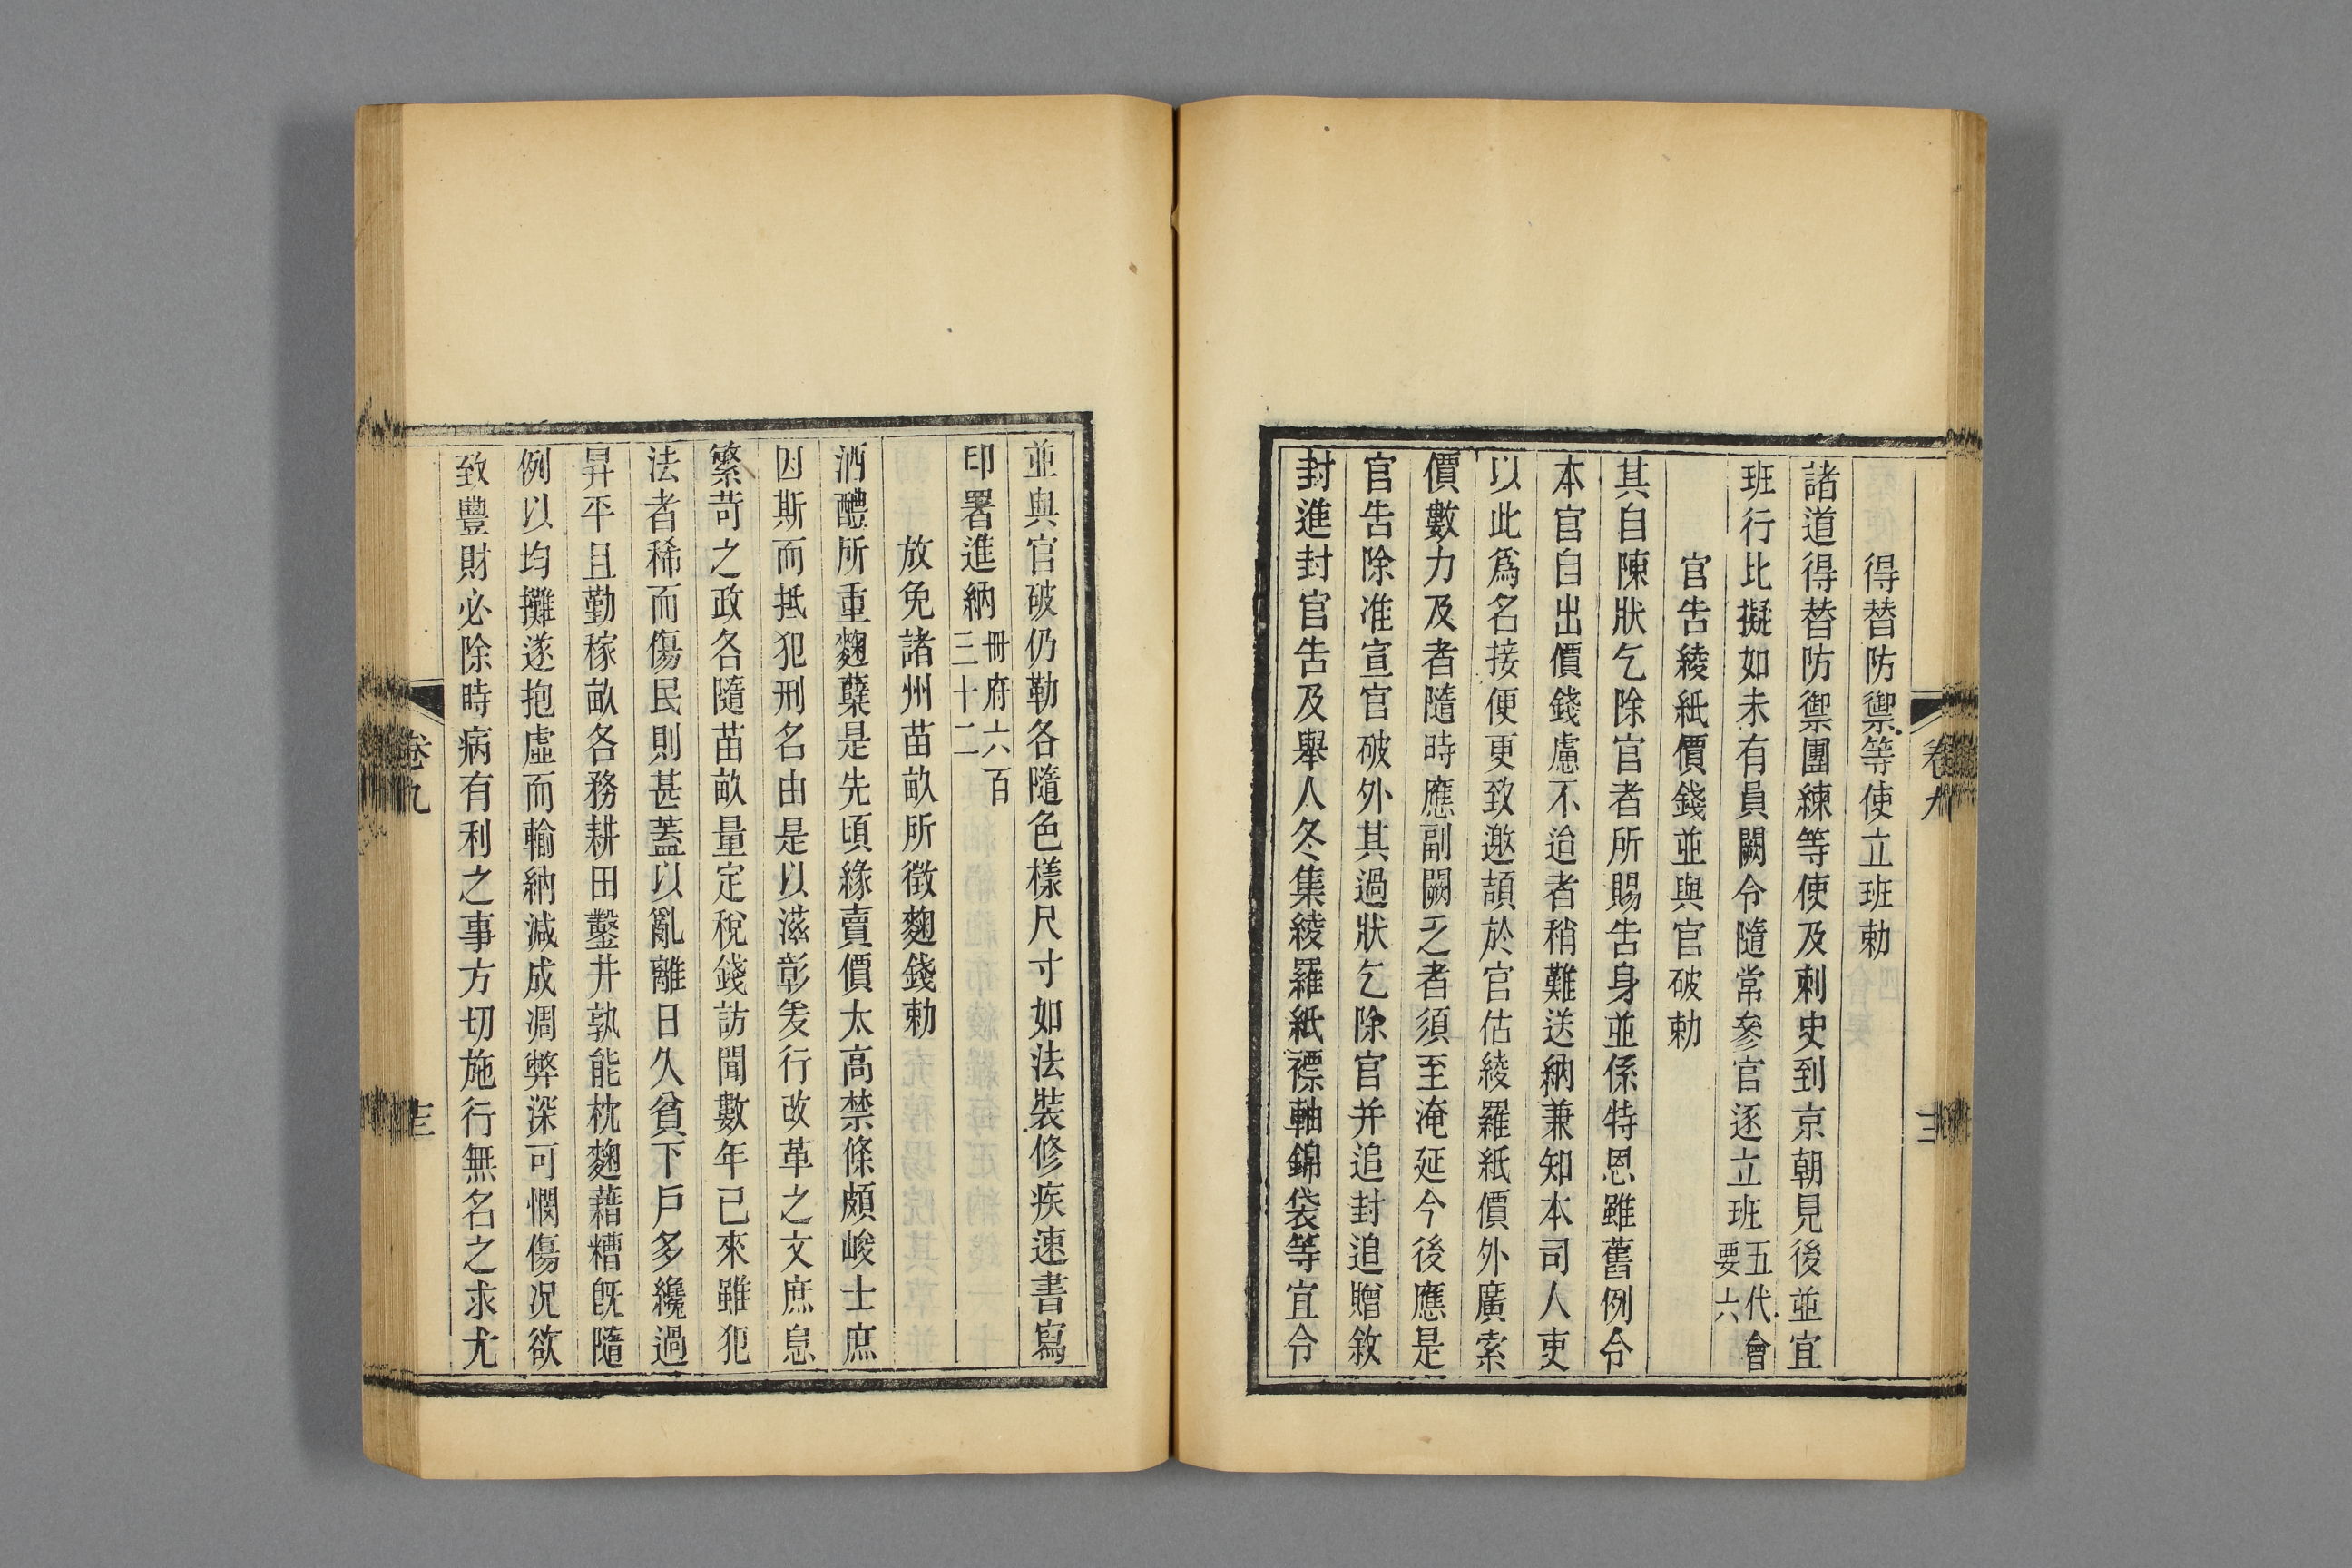 得替防禦等使立班勅
諸道得替防禦團練等使及刺史到京朝見後並宜
班行比擬如未有員闕令隨常參官逐立班五代會要六
官告綾紙價錢並與官破勅
其自陳狀乞除官者所賜告身並係特恩雖舊例令
本官自出價錢慮不迨者稍難送納兼知本司人吏
以此爲名接便更致邀頡於官估綾羅紙價外廣索
價數力及者隨時應副闕乏者須至淹延今後應是
官告除准宣官破外其過狀乞除官并追封追贈敘
封進封官告及舉人冬集綾羅紙褾軸錦袋等宜令
卷九
十二
並與官破仍勒各隨色樣尺寸如法裝修疾速書寫
印署進納冊府六百三十二
放免諸州苗畝所徵麴錢勅
酒醴所重麴糵是先頃緣賣價太高禁條頗峻士庶
因斯而抵犯刑名由是以滋彰爰行改革之文庶息
繁苛之政各隨苗畝量定稅錢訪聞數年已來雖犯
法者稀而傷民則甚蓋以亂離日久貧下戶多纔過
昇平且勤稼畝各務耕田鑿井孰能枕麴藉糟既隨
例以均攤遂抱虛而輸納減成凋弊深可憫傷況欲
致豐財必除時病有利之事方切施行無名之求尤
卷九
十三